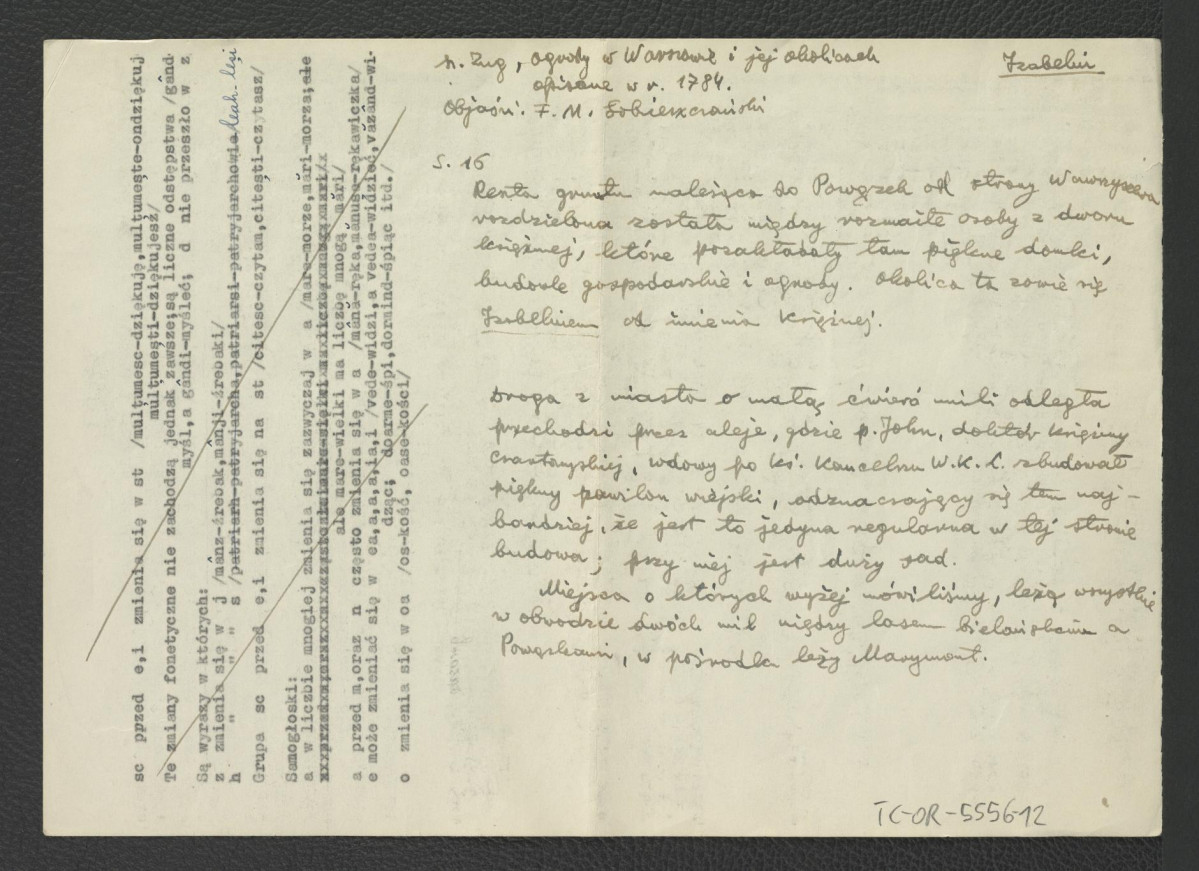 sc ppzed e,i zmienia się w st /multumesc-dziękuję,multumește-ondziękuj
multumești-dziękujesz/
Te zmiany fonetyczne nie zachodzą jednak zawsze;są liczne odstępstwa /gând
myśl,a gândi-myśleć; d nie przeszło w z
Są wyrazy w których:
z zmienia się w j /mânz-źrebak,mânji-źrebaki/
h " " s /patriarh-patryjarcha,patriarsi-patryjarchowie leah-leși
Grupa sc przed e,i zmienia się na st /citesc-czytam,citești-czytasz/
Samogłoski:
a w liczbie mnogiej zmienia się zazwyczaj w a /mare-morze,mări-morza;ale
ale mare-wielki ma liczbę mnogą mari/
a przed m,oraz n często zmienia się w a /mâna-ręka,mânuse-rękawiczka/
e może zmieniać się w ea,a,a,a,ia,i /vede-widzi,a vedea-widzieć,văzând-wi-
dząc; doarme-śpi,dormind-śpiąc itd./
o zmienia się w oa /os-kość, oase-kości/
h. Zug, Ogrody w Warszawie i jej okolicach
opisane w r. 1784.
Objaśni. F. M. Sobieszczański
Izabelin
s. 16
Reszta gruntu należąca do Powązek od strony Wawrzyszewa
rozdzielona została między rozmaite osoby z dworu
księżnej, które pozakładały tam piękne domki,
budowle gospodarskie i ogrody. Okolica ta zowie się
Izabelinem od imienia księżnej.
Droga z miasta o małą ćwierć mili odległa
przechodzi przez aleje, gdzie p. John, doktór księżny
Czartoryskiej, wdowy po ks. Kanclerzu W. K. L. zbudował
piękny pawilon wiejski, odznaczający się tem naj-
bardziej, że jest to jedyna regularna w tej stronie
budowa; przy niej jest duży sad.
Miejsca o których wyżej mówiliśmy, leżą wszystkie
w obwodzie dwóch mil między lasem bielańskim a
Powązkami, w pośrodku leży Marymont.
TC-OR-5556-12